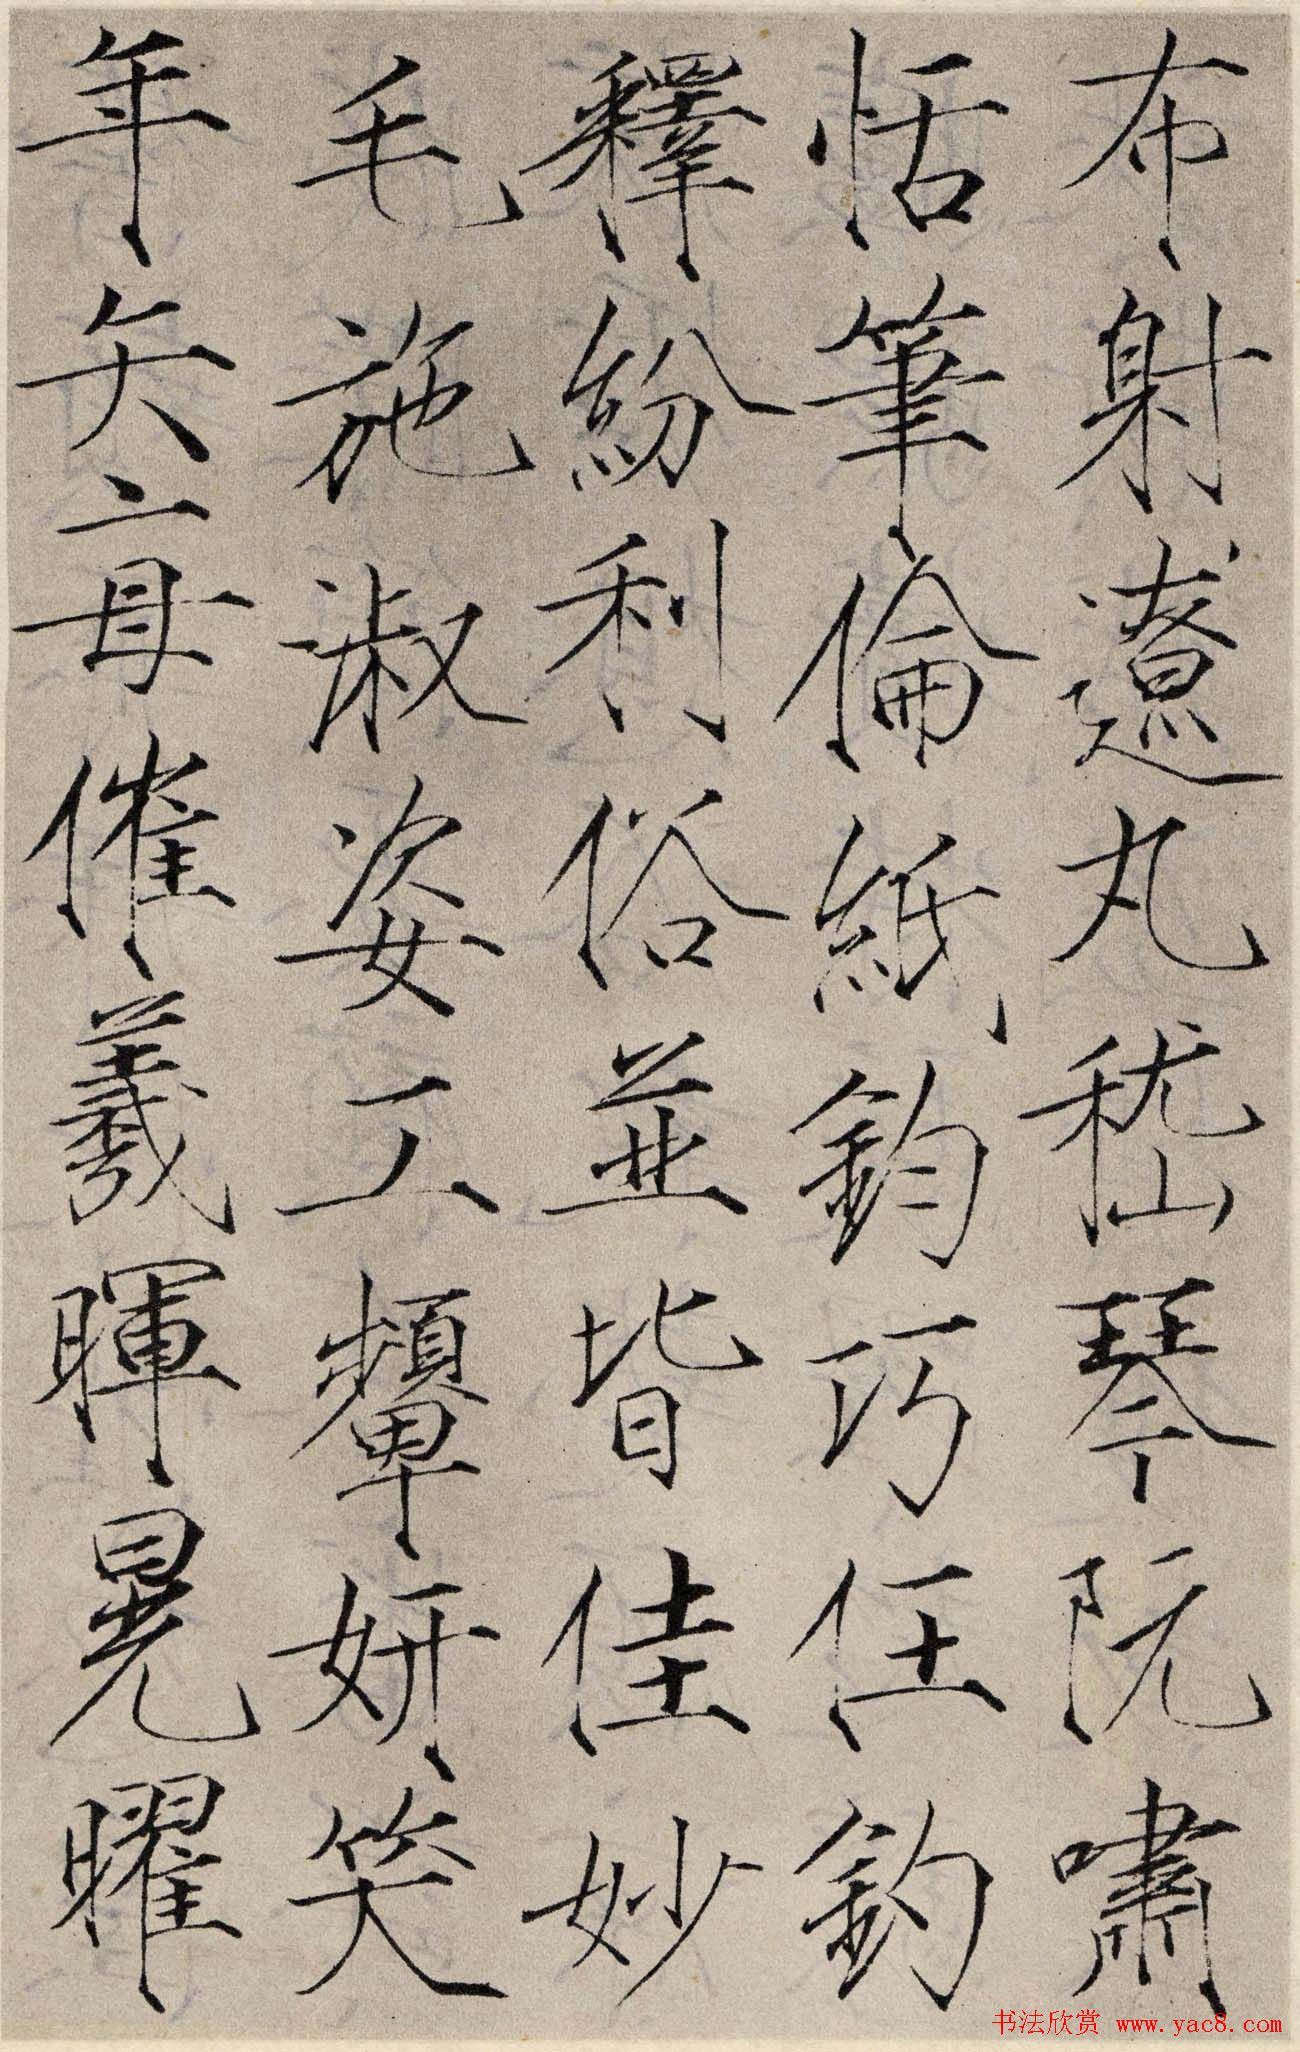 布射遼丸嵇琴阮嘯
恬筆倫紙鈞巧任釣
釋紛利俗並皆佳妙
毛施淑姿工顰妍笑
年矢每催羲暉晃曜
书法欣赏 www.yac8.com